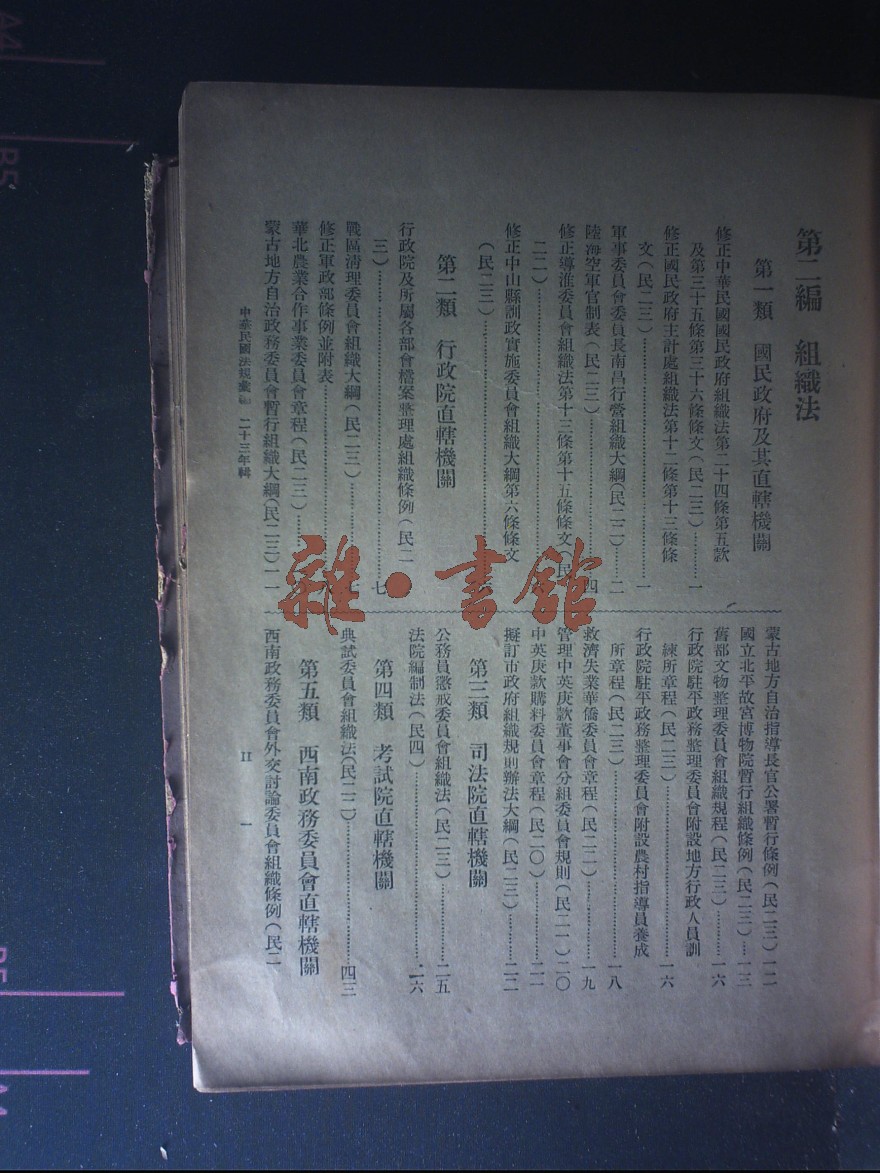 第二編　組織法
第一類　國民政府及其直轄機關
修正中華民國國民政府組織法第二十四條第五款
及第三十五條第三十六條條文(民二三)……一
修正國民政府主計處組織法第十二條第十三條條
文(民二三)……一
軍事委員會委員長南昌行營組織大綱(民二二)……二
陸海空軍官制表(民二三)……四
修正導淮委員會組織法第十三條第十五條條文(民
二二)……
修正中山縣訓政實施委員會組織大綱第六條條文
(民二三)……
第二類　行政院直轄機關
行政院及所屬各部會檔案整理處組織條例(民二
三)……七
戰區清理委員會組織大綱(民二三)……
修正軍政部條例並附表……
華北農業合作事業委員會章程(民二三)……
蒙古地方自治政務委員會暫行組織大綱(民二三)一一
蒙古地方自治指導長官公署暫行條例(民二三)一二
國立北平故宮博物院暫行組織條例(民二三)…一三
舊都文物整理委員會組織規程(民二三)……一六
行政院駐平政務整理委員會附設地方行政人員訓
練所章程(民二三)……一六
行政院駐平政務整理委員會附設農村指導員養成
所章程(民二三)……一八
救濟失業華僑委員會章程(民二二)……一九
管理中英庚款董事會分組委員會規則(民二一)二〇
中英庚款購料委員會章程(民二〇)……二一
擬訂市政府組織規則辦法大綱(民二三)……二二
第三類　司法院直轄機關
公務員懲戒委員會組織法(民二三)……二五
法院編制法(民四)……二六
第四類　考試院直轄機關
典試委員會組織法(民二二)……四三
第五類　西南政務委員會直轄機關
西南政務委員會外交討論委員會組織條例(民二
中華民國法規彙編　二十三年輯
II　一
雜·書館